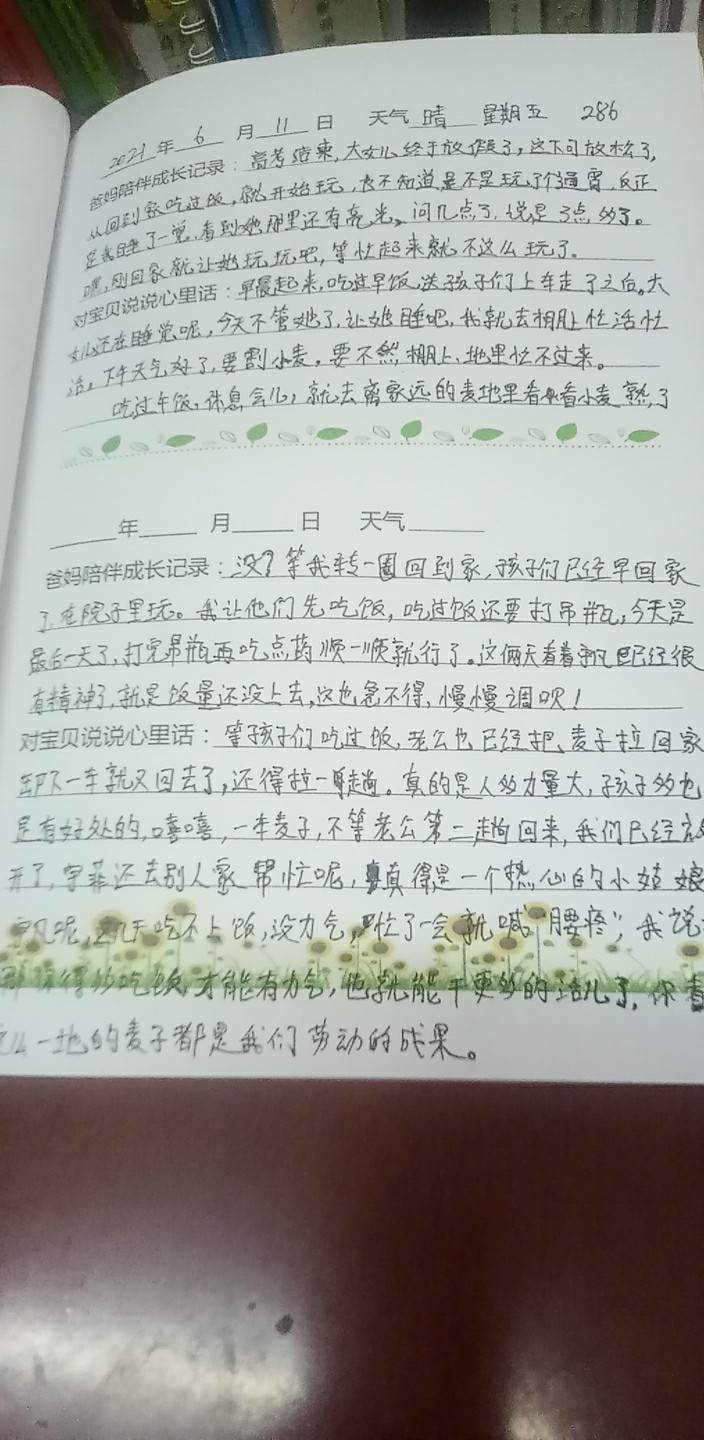 2021年 6 月 11 日 天气 晴 星期五 286
爸妈陪伴成长记录：高考结束,大女儿终于放假了,这下可放松了,
从回到家吃过饭,就开始玩,也不知道是不是玩了个通宵,反正
是我睡了一觉,看到她那里还有亮光,问几点了,说是3点多了。
嘿,刚回家就让她玩玩吧,等忙起来就不这么玩了.
对宝贝说说心里话：早晨起来,吃过早饭送孩子们上车走了之后。大
女儿还在睡觉呢,今天不管她了,让她睡吧,我就去棚上忙活忙
活,下午天气好了,要割小麦,要不然,棚上、地里忙不过来。
吃过午饭,休息会儿,就去离家远的麦地里看看小麦熟了
年 月 日 天气
爸妈陪伴成长记录：没？等我转一圈回到家,孩子们已经早回家
了,在院子里玩。我让他们先吃饭,吃过饭还要打吊瓶,今天是
最后一天了,打完吊瓶再吃点药顺一顺就行了。这俩天看着 已经很
有精神了,就是饭量还没上去,这也急不得,慢慢调呗!
对宝贝说说心里话：等孩子们吃过饭,老公也已经把麦子拉回家
卸下一车就又回去了,还得拉一趟。真的是人多力量大,孩子多也
是有好处的,嘻嘻,一车麦子,不等老公第二趟回来,我们已经
开了,宇菲还去别人家帮忙呢,真得是一个热心的小姑娘
呢,这几天吃不上饭,没力气,忙了一会就喊"腰疼",我说
得多吃饭,才能有力气,也就能干更多的活儿了,你看
一地的麦子都是我们劳动的成果。